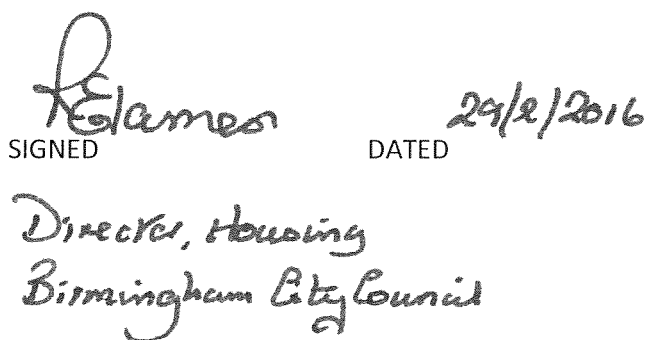 29/2/2016
SIGNED DATED
Director, Housing
Birmingham City Council